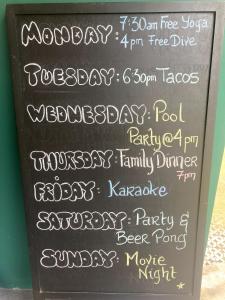 MONDAY: 7:30am Free Yoga
4pm Free Dive
TUESDAY: 6:30pm Tacos
WEDNESDAY: Pool
Party@4pm
THURSDAY: Family Dinner
7pm
FRIDAY: Karaoke
SATURDAY: Party &
Beer Pong
SUNDAY: Movie
Night